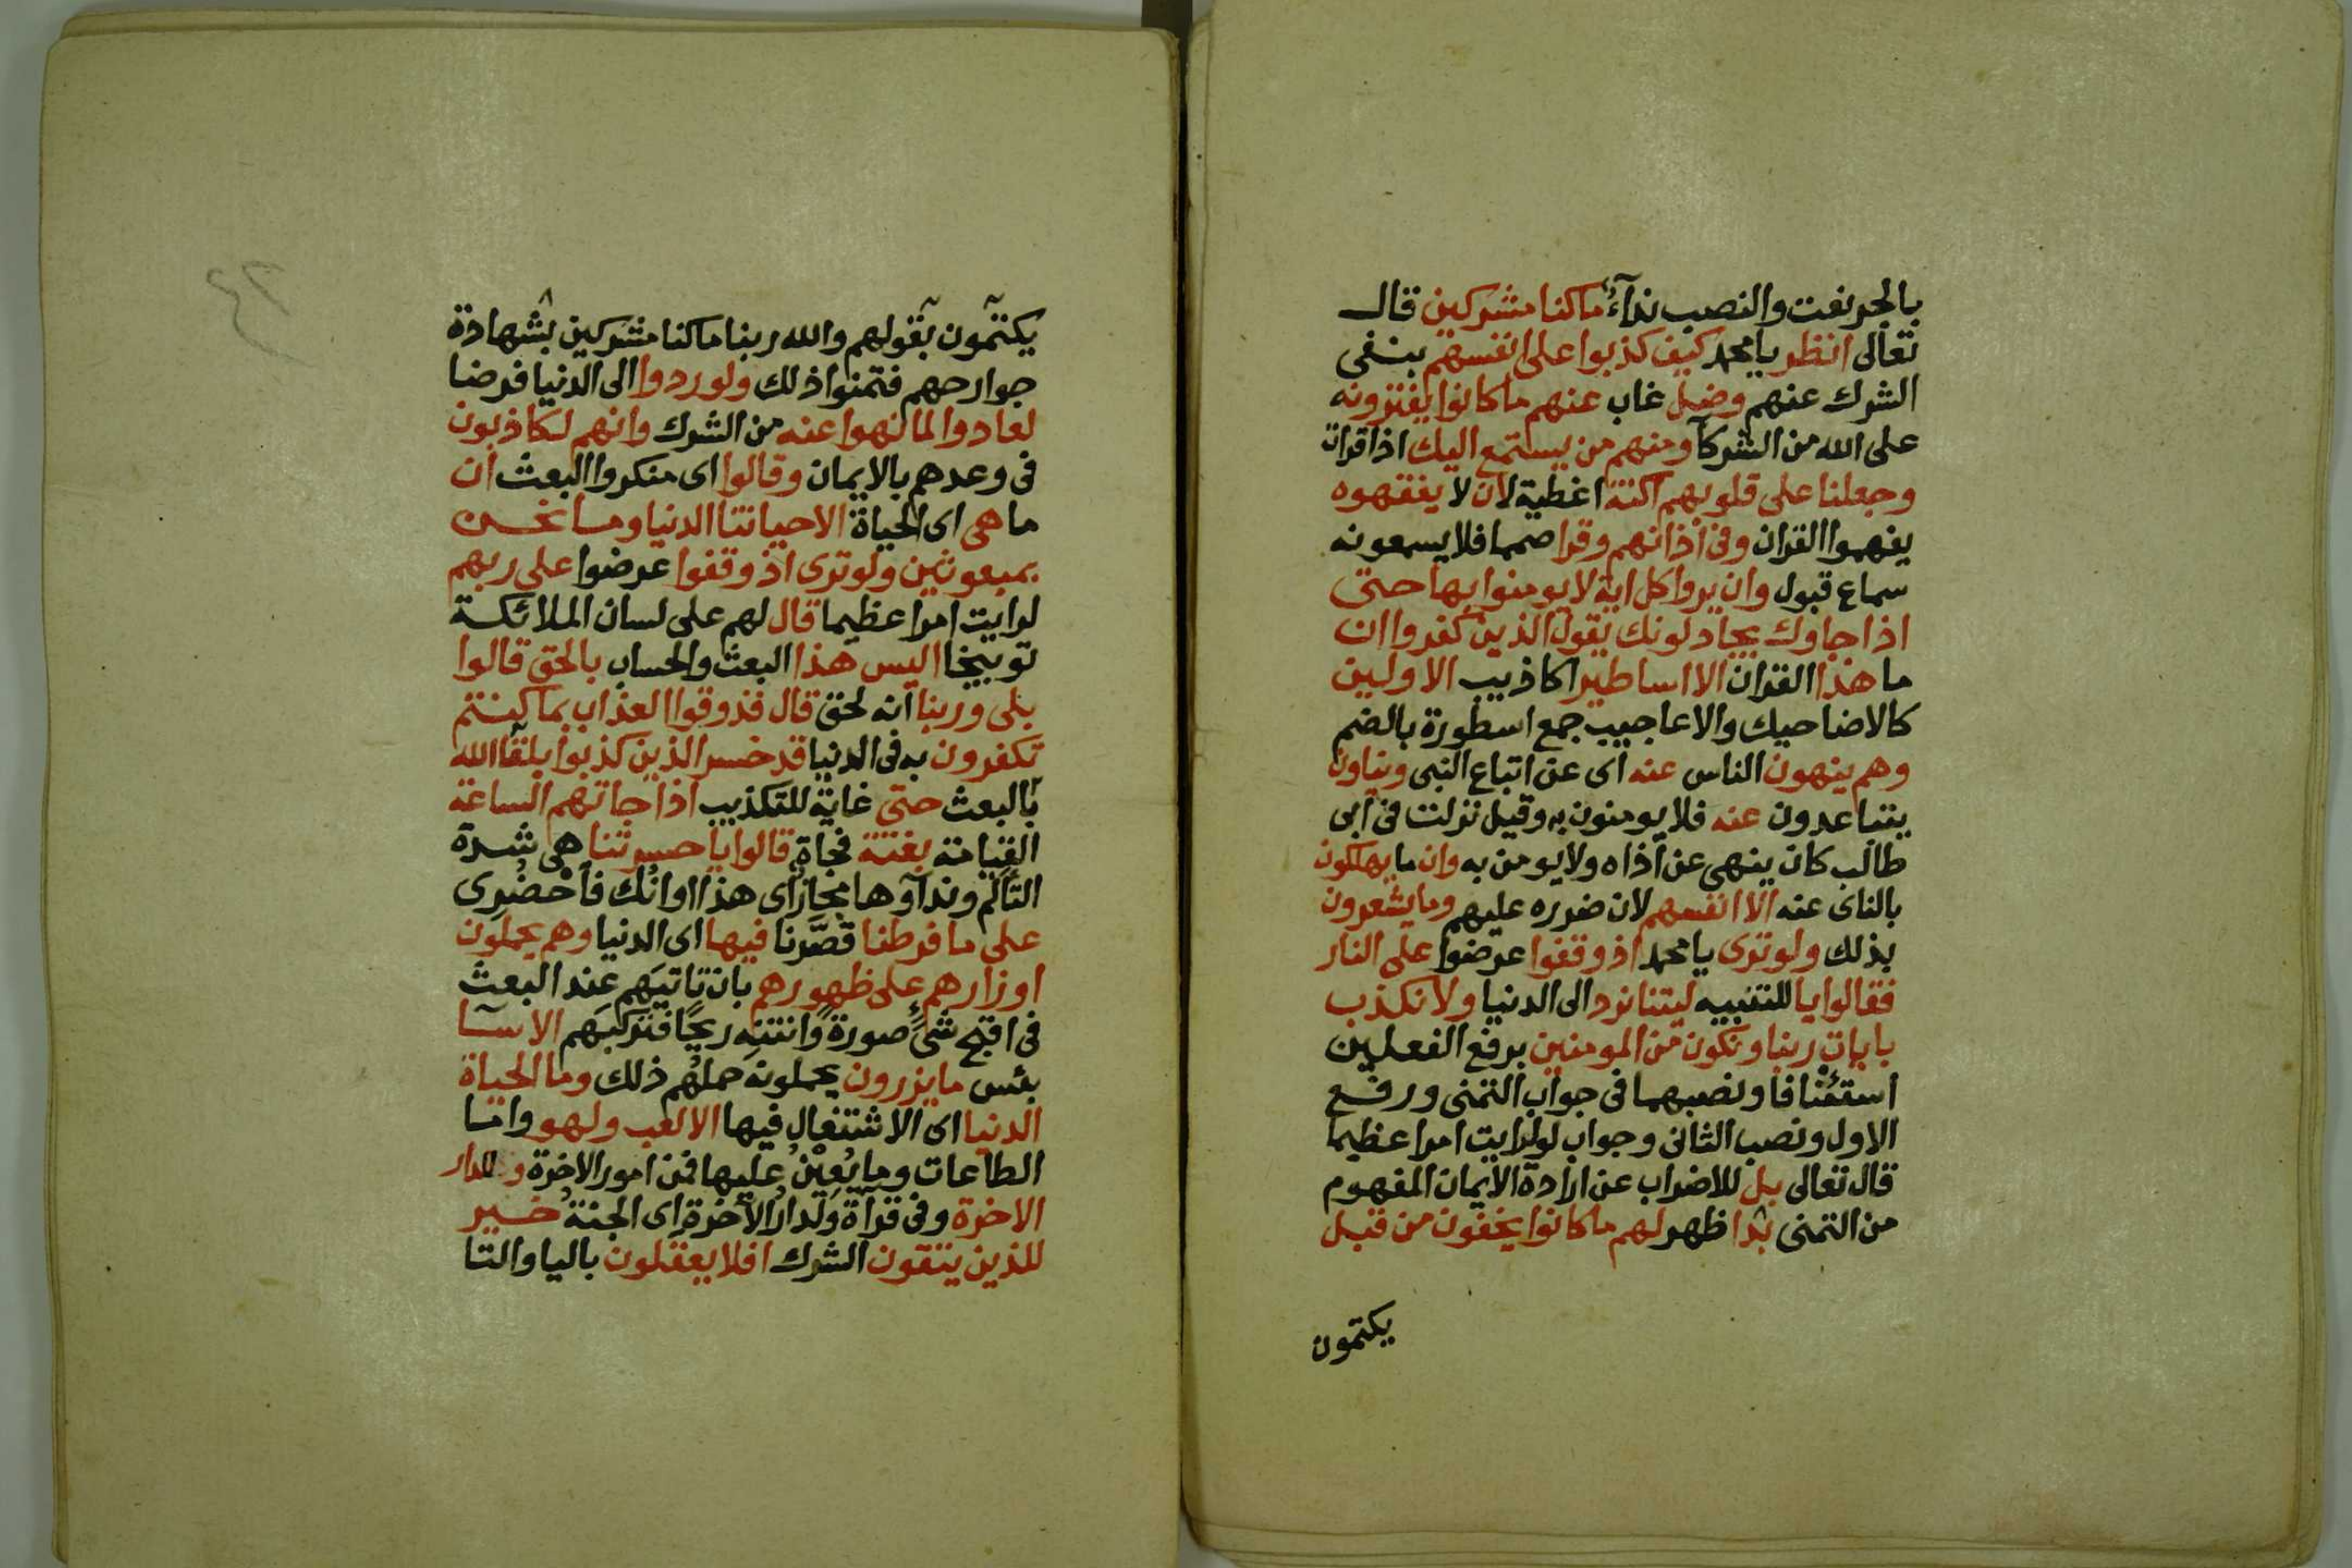 بالجر نعت والنصب نداءٌ ما كنا مشركين قال
تعالى انظر يا محمد كيف كذبوا على انفسهم بنفى
الشرك عنهم وضل غاب عنهم ما كانوا يفترونه
على الله من الشركآ ومنهم من يستمع اليك اذا قرات
وجعلنا على قلوبهم اكنة اغطية لان لا يفقهوه
يفهموا القران وفى أذانهم وقرا صمما فلا يسمعونه
سماع قبول وان يروا كل اية لا يومنوا بها حتى
اذا جاوك يجادلونك يقول الذين كفروا ان
ما هذا القران الا اساطير اكاذيب الاولين
كالاضاحيك والاعاجيب جمع اسطورة بالضم
وهم ينهون الناس عنه اى عن اتباع النبى ويناون
يتباعدون عنه فلا يومنون به وقيل نزلت فى ابى
طالب كان ينهى عن أذاه ولا يومن به وان ما يهلكون
بالناى عنه الا انفسهم لان ضرره عليهم وما يشعرون
بذلك ولو ترى يا محمد اذ وقفوا عرضوا على النار
فقالوا يا للتنبيه ليتنا نرد الى الدنيا ولا نكذب
بايات ربنا ونكون من المومنين برفع الفعلين
استئنافا ونصبهما فى جواب التمنى ورفع
الاول ونصب الثانى وجواب لو لرايت امرا عظيما
قال تعالى بل للاضراب عن ارادة الايمان المفهوم
من التمنى بدا ظهر لهم ما كانوا يخفون من قبل
يكتمون
يكتمون بقولهم والله ربنا ما كنا مشركين بشهادة
جوارحهم فتمنوا ذلك ولو ردوا الى الدنيا فرضا
لعادوا لما نهوا عنه من الشرك وانهم لكاذبون
فى وعدهم بالايمان وقالوا اى منكروا البعث ان
ما هى اى الحياة الا حياتنا الدنيا وما نحن
بمبعوثين ولو ترى اذ وقفوا عرضوا على ربهم
لرايت امرا عظيما قال لهم على لسان الملائكة
توبيخا اليس هذا البعث والحساب بالحق قالوا
بلى وربنا انه لحق قال فذوقوا العذاب بما كنتم
تكفرون به فى الدنيا قد خسر الذين كذبوا بلقآ الله
بالبعث حتى غاية للتكذيب اذا جاتهم الساعة
القيامة بغتة فجاة قالوا يا حسرتنا هى شدة
التألم وندآوها مجاز اى هذا اوانك فاحْضُرِى
على ما فرطنا قصَّرنا فيها اى الدنيا وهم يحملون
اوزارهم على ظهورهم بان تاتيَهم عند البعث
فى اقبح شىءٍ صورةً وانتنِه ريحًا فتركبَهم الا سآ
بئس ما يزرون يحملونه حملُهم ذلك وما الحياة
الدنيا اى الاشتغال فيها الا لعب ولهو واما
الطاعات وما يُعِيْنُ عليها فمن امور الاخرة وللدار
الاخرة وفى قراة وَلَدارُ الآخرةِ اى الجنةُ خير
للذين يتقون الشرك افلا يعقلون باليا والتا